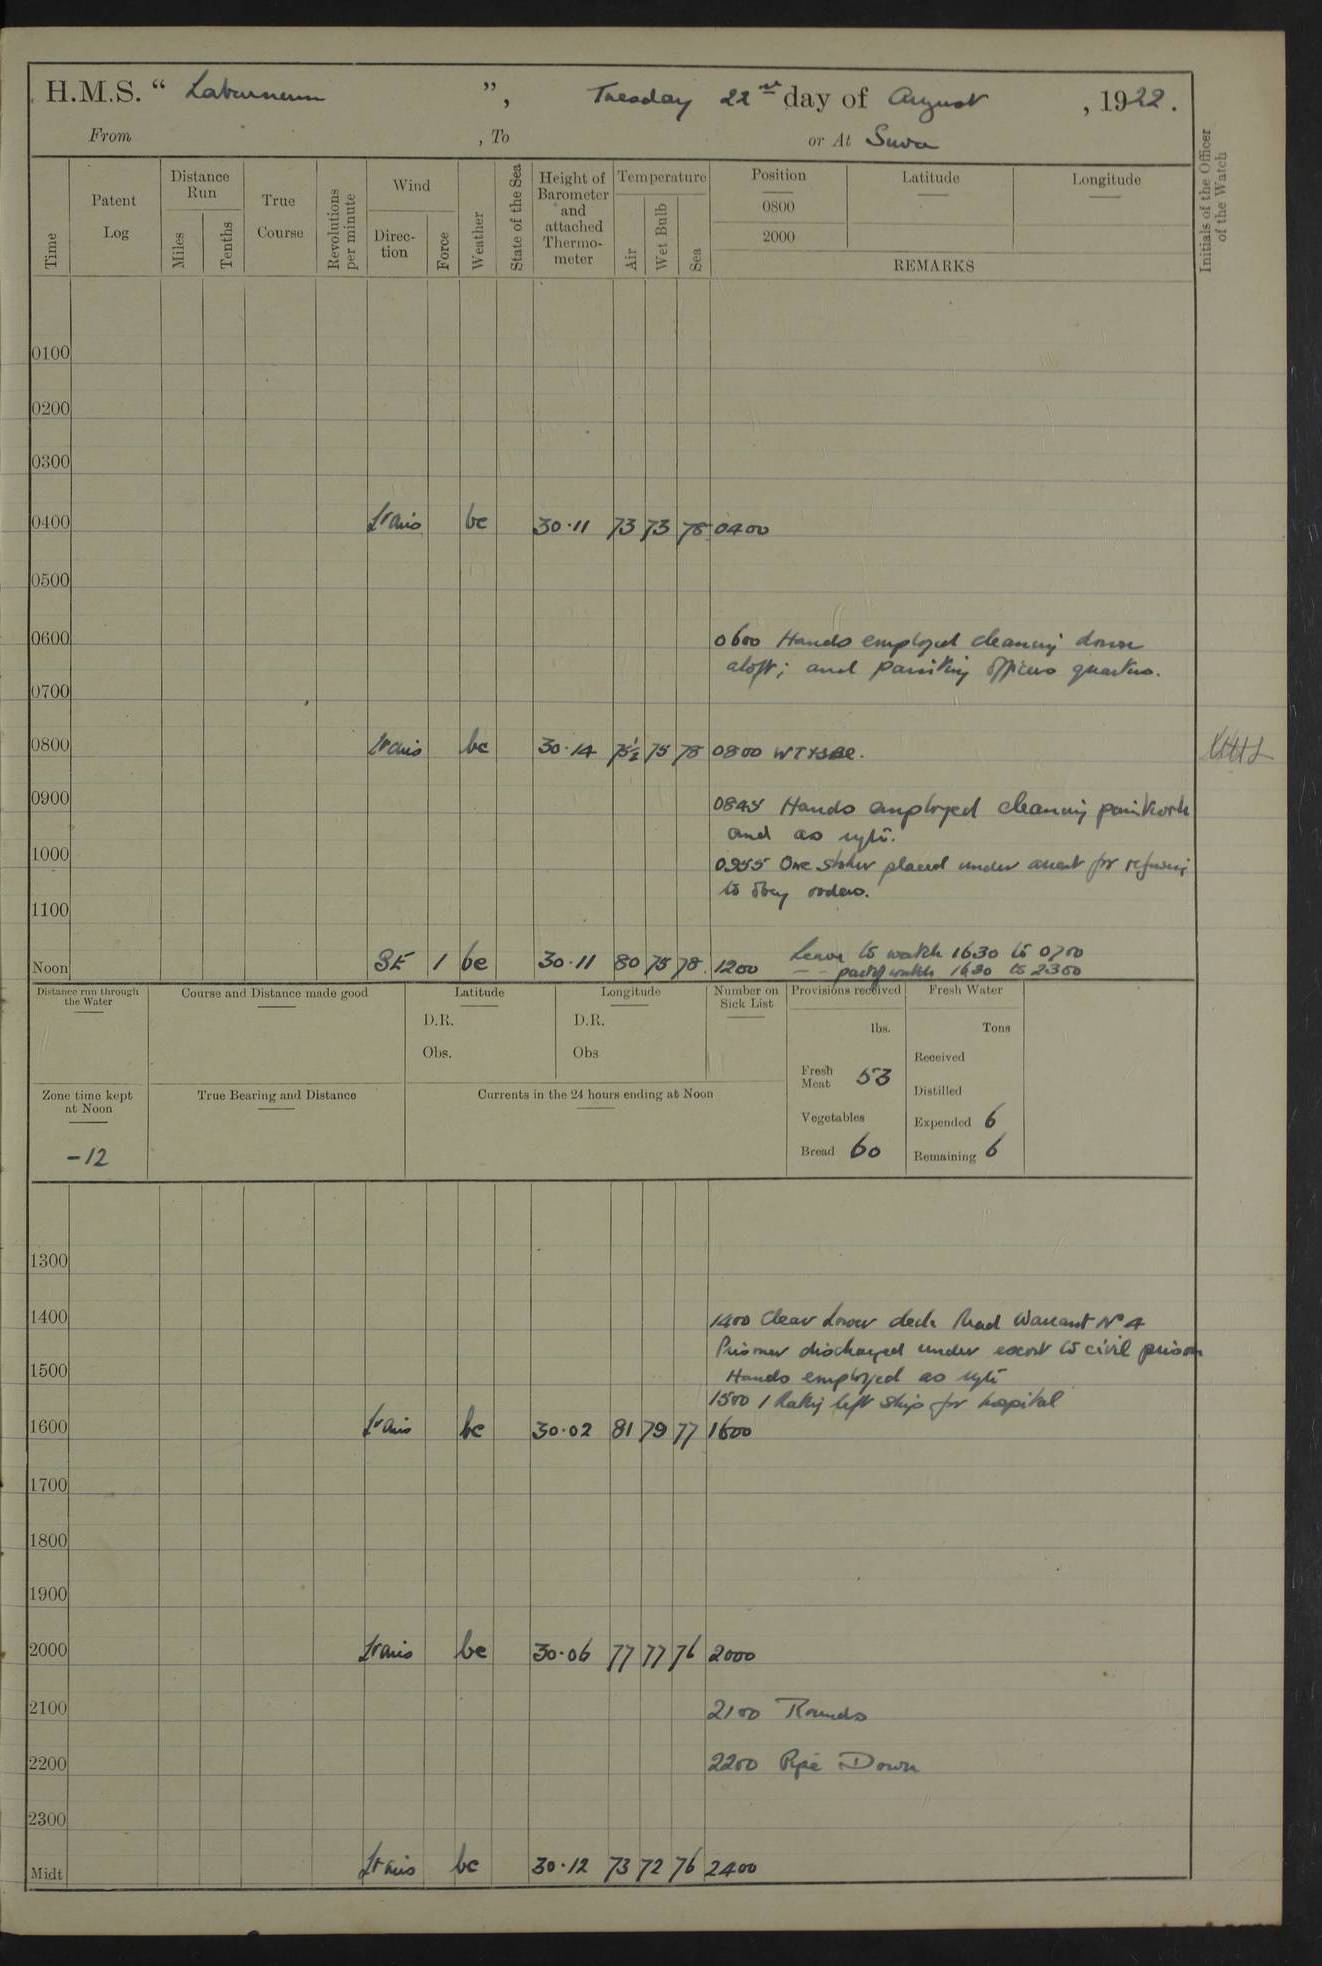 H.M.S. “ Laburnum ”, Tuesday 22nd day of August , 1922.
From , To or At Suva
Time
Patent Log
Distance Run
Miles
Tenths
True Course
Revolutions per minute
Wind
Direc-tion
Force
Weather
State of the Sea
Height of Barometer and attached Thermo-meter
Temperature
Air
Wet Bulb
Sea
Position
0800
2000
Latitude
Longitude
REMARKS
Initials of the Officer of the Watch
0100
0200
0300
0400 Lt airs bc 30·11 73 73 78 0400
0500
0600 0600 Hands employed cleaning down
aloft; and painting officers quarters.
0700
0800 Lt airs bc 30·14 75½ 75 78 0800
0900 0845 Hands employed cleaning paintwork
and as reqte.
1000 0955 One stoker placed under arrest for refusing
to obey orders.
1100
Leave to watch 1630 to 0700
Noon SE 1 bc 30·11 80 75 78 1200
— - part of watch 1630 to 2300
Distance run through the Water
Course and Distance made good
Latitude
D.R.
Obs.
Longitude
D.R.
Obs
Number on Sick List
Provisions received
lbs.
Fresh Meat 53
Vegetables
Bread 60
Fresh Water
Tons
Received
Distilled
Expended 6
Remaining 6
Zone time kept at Noon
-12
True Bearing and Distance
Currents in the 24 hours ending at Noon
1300
1400 1400 Clear Lower deck Read Warrant No 4
Prisoner discharged under escort to civil prison
1500 Hands employed as reqte
1500 1 Rating left ship for hospital
1600 Lt airs bc 30·02 81 79 77 1600
1700
1800
1900
2000 Lt airs bc 30·06 77 77 76 2000
2100 2100 Rounds
2200 2200 Pipe Down
2300
Midt Lt airs bc 30·12 73 72 76 2400